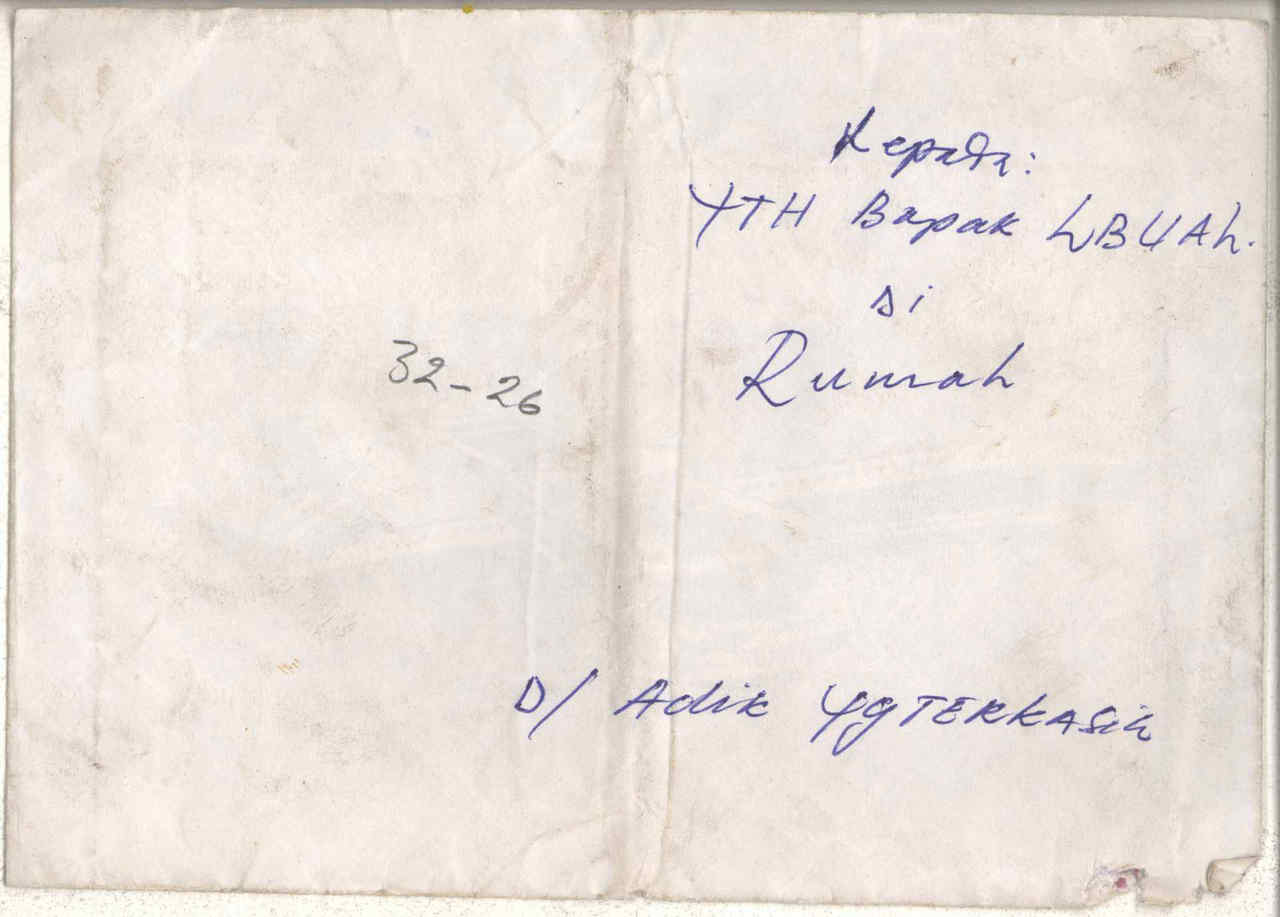 Kepada:
YTH Bapak LBUAL.
di
Rumah
32-26
D/ Adik Yg TERKASih